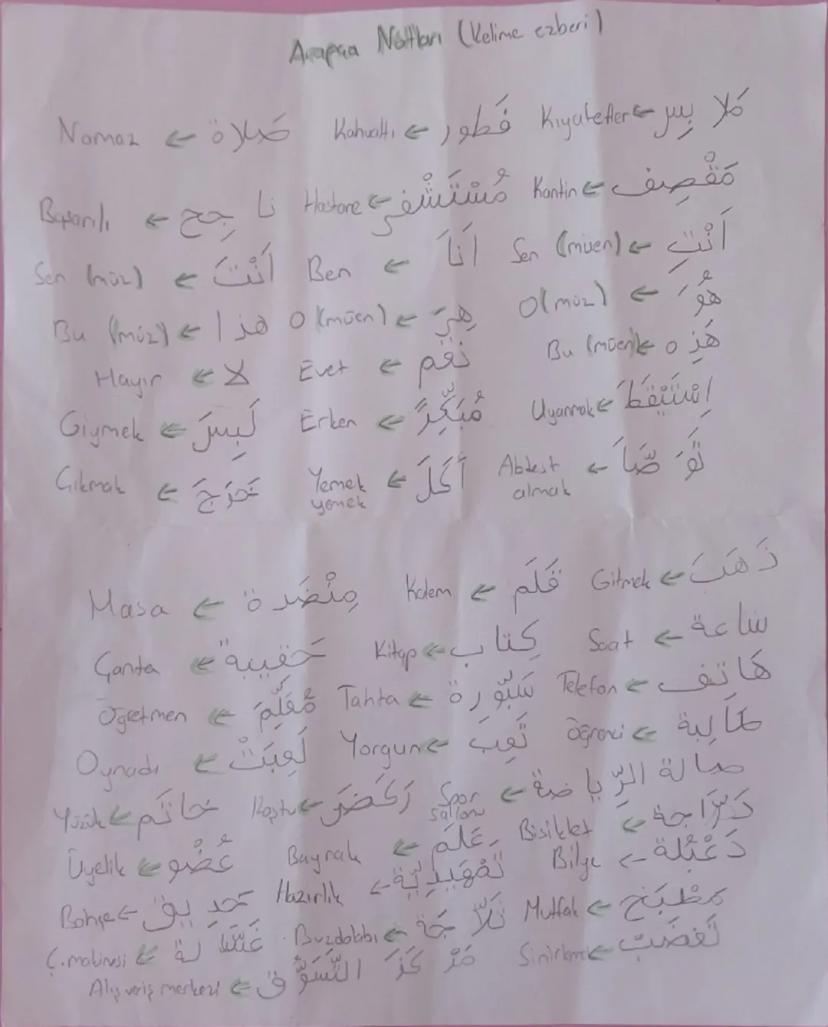 Arapça Notları (Kelime ezberi)
Namaz ← صَلاة Kahvaltı ← فَطور Kıyafetler ← مَلابِس
Başarılı ← ناجِح Hastane ← مُسْتَشْفى Kantin ← مَقْصِف
Sen (müz) ← أَنْتَ Ben ← أَنَا Sen (müen) ← أَنْتِ
Bu (müz) ← هذا O (müen) ← هِيَ O (müz) ← هُوَ
Hayır ← لا Evet ← نَعَم Bu (müen) ← هَذِه
Giymek ← لَبِسَ Erken ← مُبَكِّرًا Uyanmak ← اِسْتَيْقَظَ
Çıkmak ← خَرَجَ Yemek yemek ← أَكَلَ Abdest almak ←
Masa ← مِنْضَدة Kalem ← قَلَم Gitmek ← ذَهَبَ
Çanta ← حَقيبة Kitap ← كِتاب Saat ← ساعة
Öğretmen ← مُعَلِّم Tahta ← سَبّورة Telefon ← هَاتف
Oynadı ← لَعِبَتْ Yorgun ← تَعِبَ Öğrenci ← طَالِبة
Yüzük ← خاتَم Koştu ← رَكَضَ Spor salonu ← صالة الرِّياضة
Üyelik ← عُضْو Bayrak ← عَلَم Bisiklet ← دَرّاجة
Bahçe ← Hazırlık ← تَمْهيدِيّة Bilye ←
Ç.makinesi ← غَسّالة Buzdolabı ← ثَلّاجَة Mutfak ← مَطْبَخ
Alış veriş merkezi ← مَرْكَز التَّسَوُّق Sinirlenmek ←